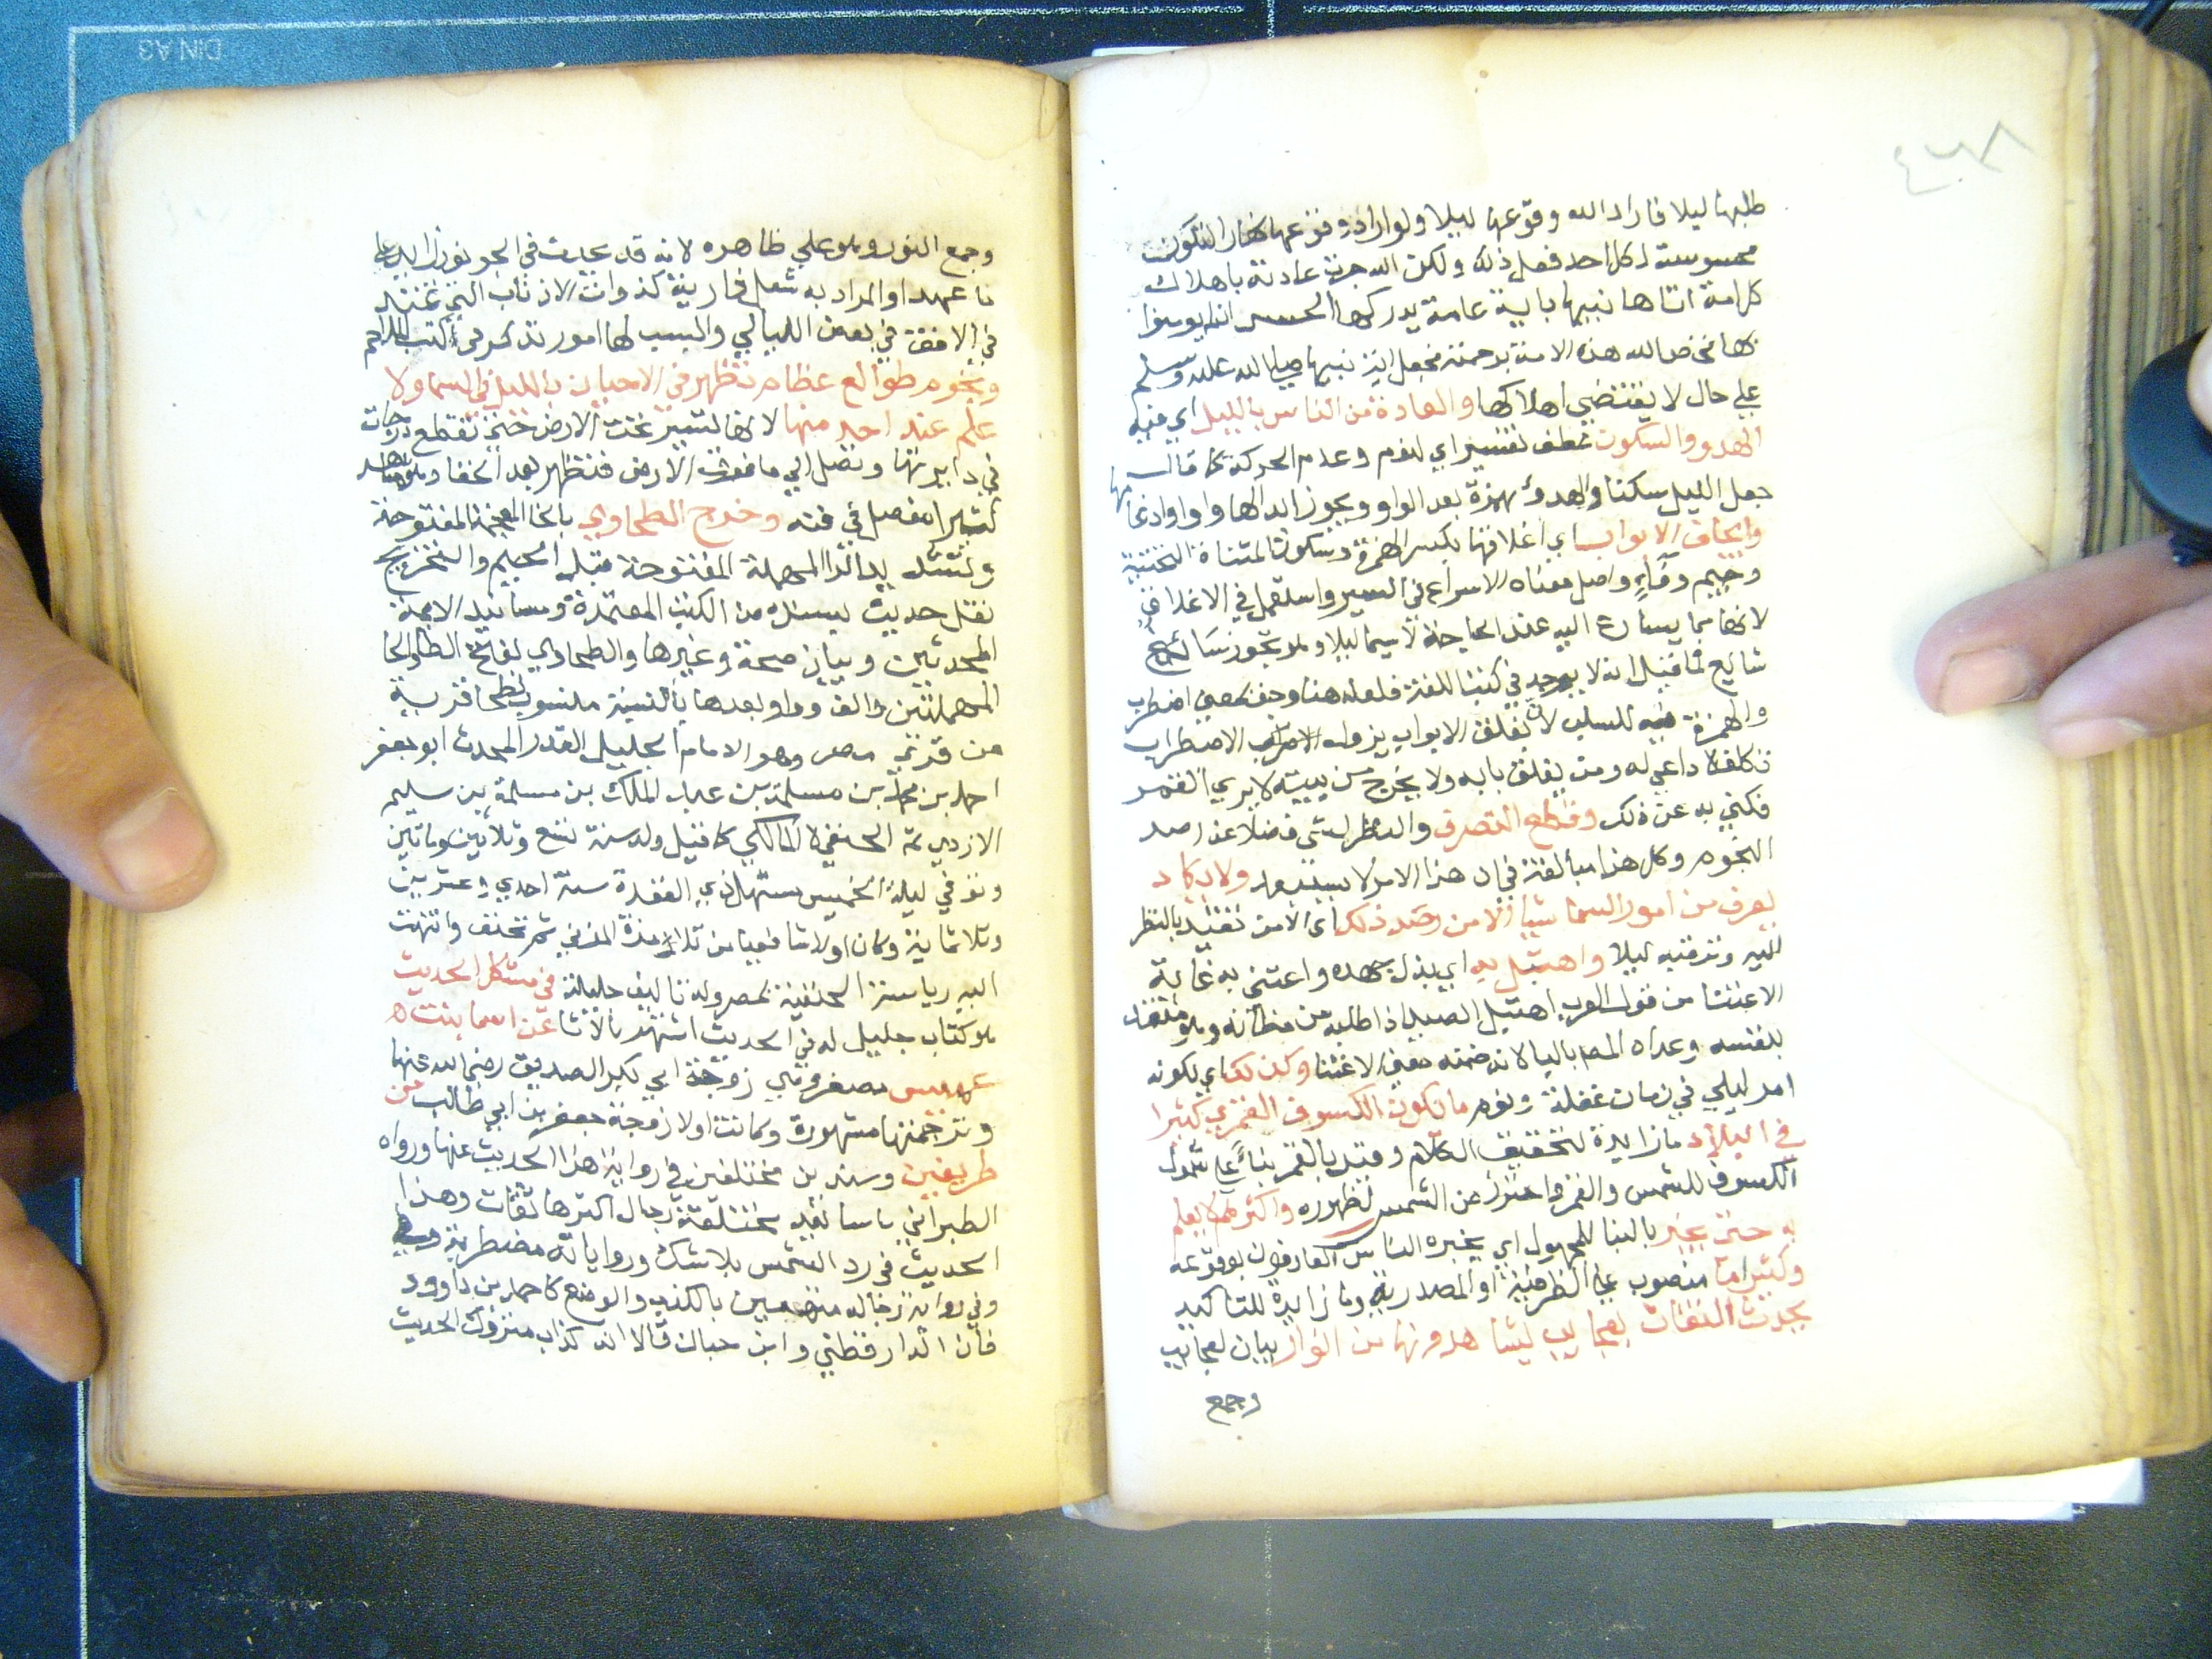 ٤٣٨
طلبها ليلا فاراد الله وقوعها ليلا ولو اراد وقوعها نهارا لتكون
محسوسة لكل احد فعل ذلك ولكن الله جرت عادته باهلاك
كل امة اتاها نبيها باية عامة يدركها الحس اذا لم يومنوا
بها فخص الله هذه الامة برحمته فجعل اية نبيها صلى الله عليه وسلم
على حال لا يقتضي اهلاكها والعادة من الناس بالليل اي فيه
الهدو والسكون عطف تفسير اي النوم وعدم الحركة كما قال
جعل الليل سكنا والهدوء بهمزة بعد الواو ويجوز ابدالها واوا وادغامها
وايجاف الابواب اي اغلاقها بكسر الهمزة وسكون المثناة التحتية
وجيم وفاء واصل معناه الاسراع في السير واستعمل في الاغلاق
لانها مما يسارع اليه عند الحاجة لا سيما ليلا وهو تجوز
شايع لما قيل انه لا يوجد في كتب اللغة فلعله هنا وجف بمعنى اضطرب
والهمزة فيه للسلب لان بغلق الابواب يزول الاضطراب
داعي له ومن يغلق بابه ولا يخرج من بيته لا يري القمر
فكني به عن ذلك وقطع التصرف والنظر لشي فضلا عن رصد
النجوم وكل هذا مبالغة في ان هذا الامر لا يستبعد ولا يكاد
يعرف من امور السما شيا الا من رصد ذلك اي الا من تقيد بالنظر
اليه وترقبه ليلا واهتبل به اي بذل جهده واعتني به غاية
الاعتنا من قول العرب اهتبل الصيد اذا طلبه من مظانه وهو متعد
بنفسه وعداه المص بالبا لانه ضمنه معني الاعتنا وكذلك اي لكونه
امر ليلي في زمان غفلة ونوم ما يكون الكسوف القمري كثيرا
في البلاد ما زايدة لتحقيق الكلام وقيد بالقمر بناء على شمول
الكسوف للشمس والقمر واحترز عن الشمس لظهوره واكثرهم لا يعلم
به حتى يخبر بالبنا للمجهول اي يخبره الناس العارفون بوقوعه
وكثيرا ما منصوب على الظرفية او المصدرية وما زايدة للتاكيد
يحدث الثقات بعجايب يشاهدونها من انوار بيان لعجايب
وجمع
وجمع النور وهو علي ظاهره لانه قد يحدث في الجو نور زايد على
ما عهد او المراد به شعل نارية كذوات الاذناب التي تمتد
في الافق في بعض الليالي والسبب لها امور تذكر في كتب
ونجوم طوالع عظام تظهر في الاحيان بالليل في السما ولا
علم عند احد منها لانها لتسير تحت الارض حتى تقطع درجات
في دايرتها وتصل الي ما فوق الارض فتظهر بعد الخفا وهو مشاهد
كثيرا مفصل في فنه وخرج الطحاوي بالخا المعجمة المفتوحة
وتشديد الرا المهملة المفتوحة قبل الجيم والتخريج
نقل حديث بسنده من الكتب المعتمدة ومسانيد الايمة
المحدثين وبيان صحة وغيرها والطحاوي بفتح الطا والحا
المهملتين والف وواو بعدها يا النسبة منسوب لطحا قرية
من قرى مصر وهو الامام الجليل القدر المحدث ابو جعفر
احمد بن محمد بن مسلمة بن عبد الملك بن مسلمة بن سليم
الازدي ثم الحنفي لا المالكي كما قيل ولد سنة تسع وثلاثين وماتين
وتوفي ليلة الخميس مستهل ذي القعدة سنة احدي وعشرين
وثلاثماية وكان اولا شافعيا من تلامذة المزني ثم تحنف وانتهت
اليه رياسة الحنفية بمصر وله تاليف جليلة في مشكل الحديث
هو كتاب جليل له في الحديث اشتهر بالاثار عن اسما بنت
عميس مصغر وهي زوجة ابي بكر الصديق رضي الله عنها
وترجمتها مشهورة وكانت اولا زوجة جعفر بن ابي طالب من
طريقين وسندين مختلفين في رواية هذا الحديث عنها ورواه
الطبراني باسانيد مختلفة رجال اكثرها ثقات وهذا
الحديث في رد الشمس بلا شك ورواياته مضطربة
وفي رواية رجاله متهمين بالكذب والوضع كاحمد بن داوود
فان الدارقطني وابن حبان قالا انه كذاب متروك الحديث